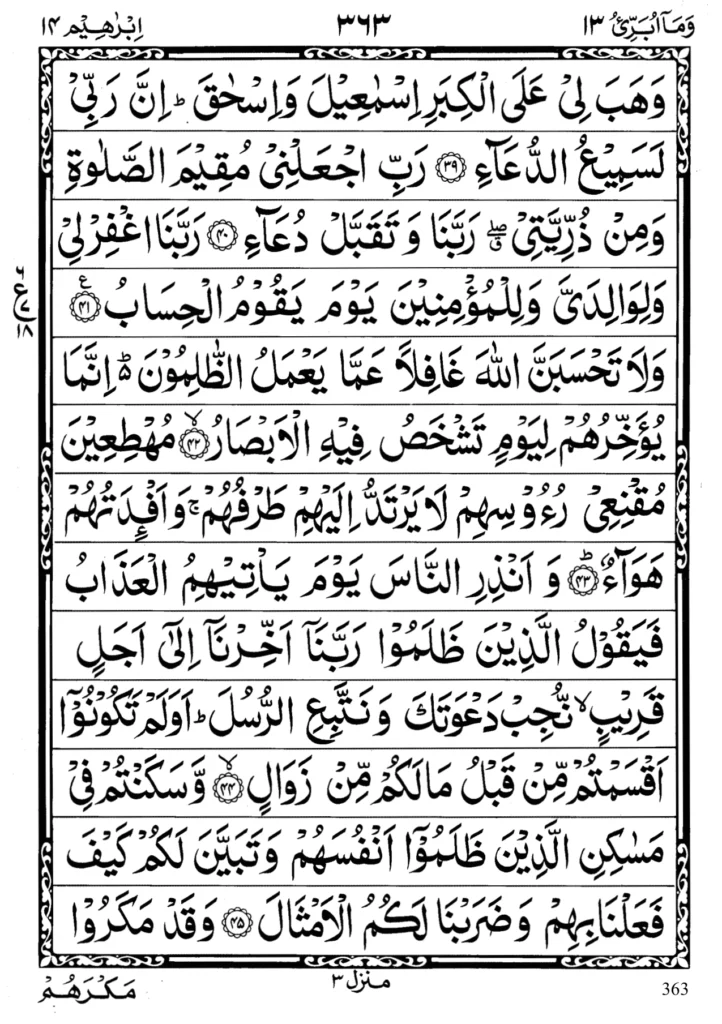 وَمَآ اُبَرِّئُ ١٣ ٣٦٣ اِبْرٰهِيْم ١٤
وَهَبَ لِیْ عَلَی الْكِبَرِ اِسْمٰعِيْلَ وَاِسْحٰقَ ؕ اِنَّ رَبِّیْ
لَسَمِيْعُ الدُّعَآءِ ۝۳۹ رَبِّ اجْعَلْنِیْ مُقِيْمَ الصَّلٰوةِ
وَمِنْ ذُرِّيَّتِیْ ۖۗ رَبَّنَا وَتَقَبَّلْ دُعَآءِ ۝۴۰ رَبَّنَا اغْفِرْ لِیْ
وَلِوَالِدَیَّ وَلِلْمُؤْمِنِيْنَ يَوْمَ يَقُوْمُ الْحِسَابُ ۝۴۱ ع
٦ ع ٧ ١٨
وَلَا تَحْسَبَنَّ اللّٰهَ غَافِلًا عَمَّا يَعْمَلُ الظّٰلِمُوْنَ ؕ۬ اِنَّمَا
يُؤَخِّرُهُمْ لِيَوْمٍ تَشْخَصُ فِيْهِ الْاَبْصَارُ ۝۴۲ۙ مُهْطِعِيْنَ
مُقْنِعِیْ رُءُوْسِهِمْ لَا يَرْتَدُّ اِلَيْهِمْ طَرْفُهُمْ ۚ وَاَفْـِٕدَتُهُمْ
هَوَآءٌ ۝۴۳ؕ وَاَنْذِرِ النَّاسَ يَوْمَ يَاْتِيْهِمُ الْعَذَابُ
فَيَقُوْلُ الَّذِيْنَ ظَلَمُوْا رَبَّنَآ اَخِّرْنَآ اِلٰٓی اَجَلٍ
قَرِيْبٍ ۙ نُّجِبْ دَعْوَتَكَ وَنَتَّبِعِ الرُّسُلَ ؕ اَوَلَمْ تَكُوْنُوْۤا
اَقْسَمْتُمْ مِّنْ قَبْلُ مَا لَكُمْ مِّنْ زَوَالٍ ۝۴۴ۙ وَّسَكَنْتُمْ فِیْ
مَسٰكِنِ الَّذِيْنَ ظَلَمُوْۤا اَنْفُسَهُمْ وَتَبَيَّنَ لَكُمْ كَيْفَ
فَعَلْنَا بِهِمْ وَضَرَبْنَا لَكُمُ الْاَمْثَالَ ۝۴۵ وَقَدْ مَكَرُوْا
مَكْرَهُمْ منزل ٣ 363